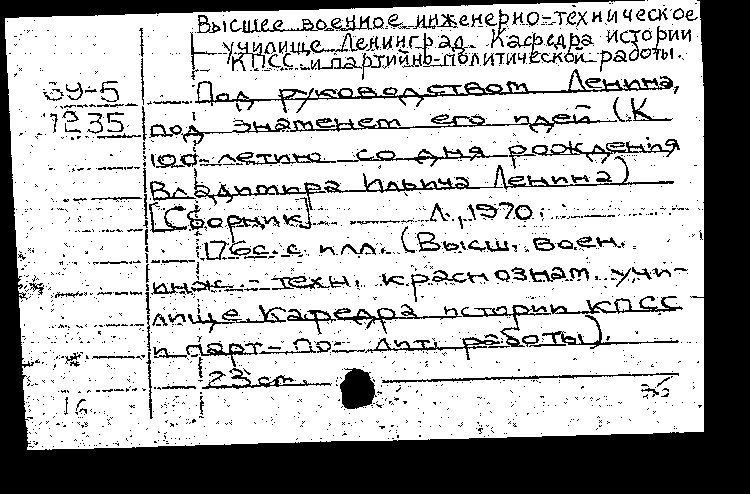 Высшее военное инженерно-техническое
училище Ленинград. Кафедра истории
КПСС и партийно-политической работы.
69-5 Под руководством Ленина,
7235 под знаменем его идей (К
100-летию со дня рождения
Владимира Ильича Ленина)
[Сборник] Л., 1970.
176с. с илл. (Высш. воен.
инж.-техн. краснознам. учи-
лище. Кафедра истории КПСС
и парт-по- лит. работы).
23см.
16